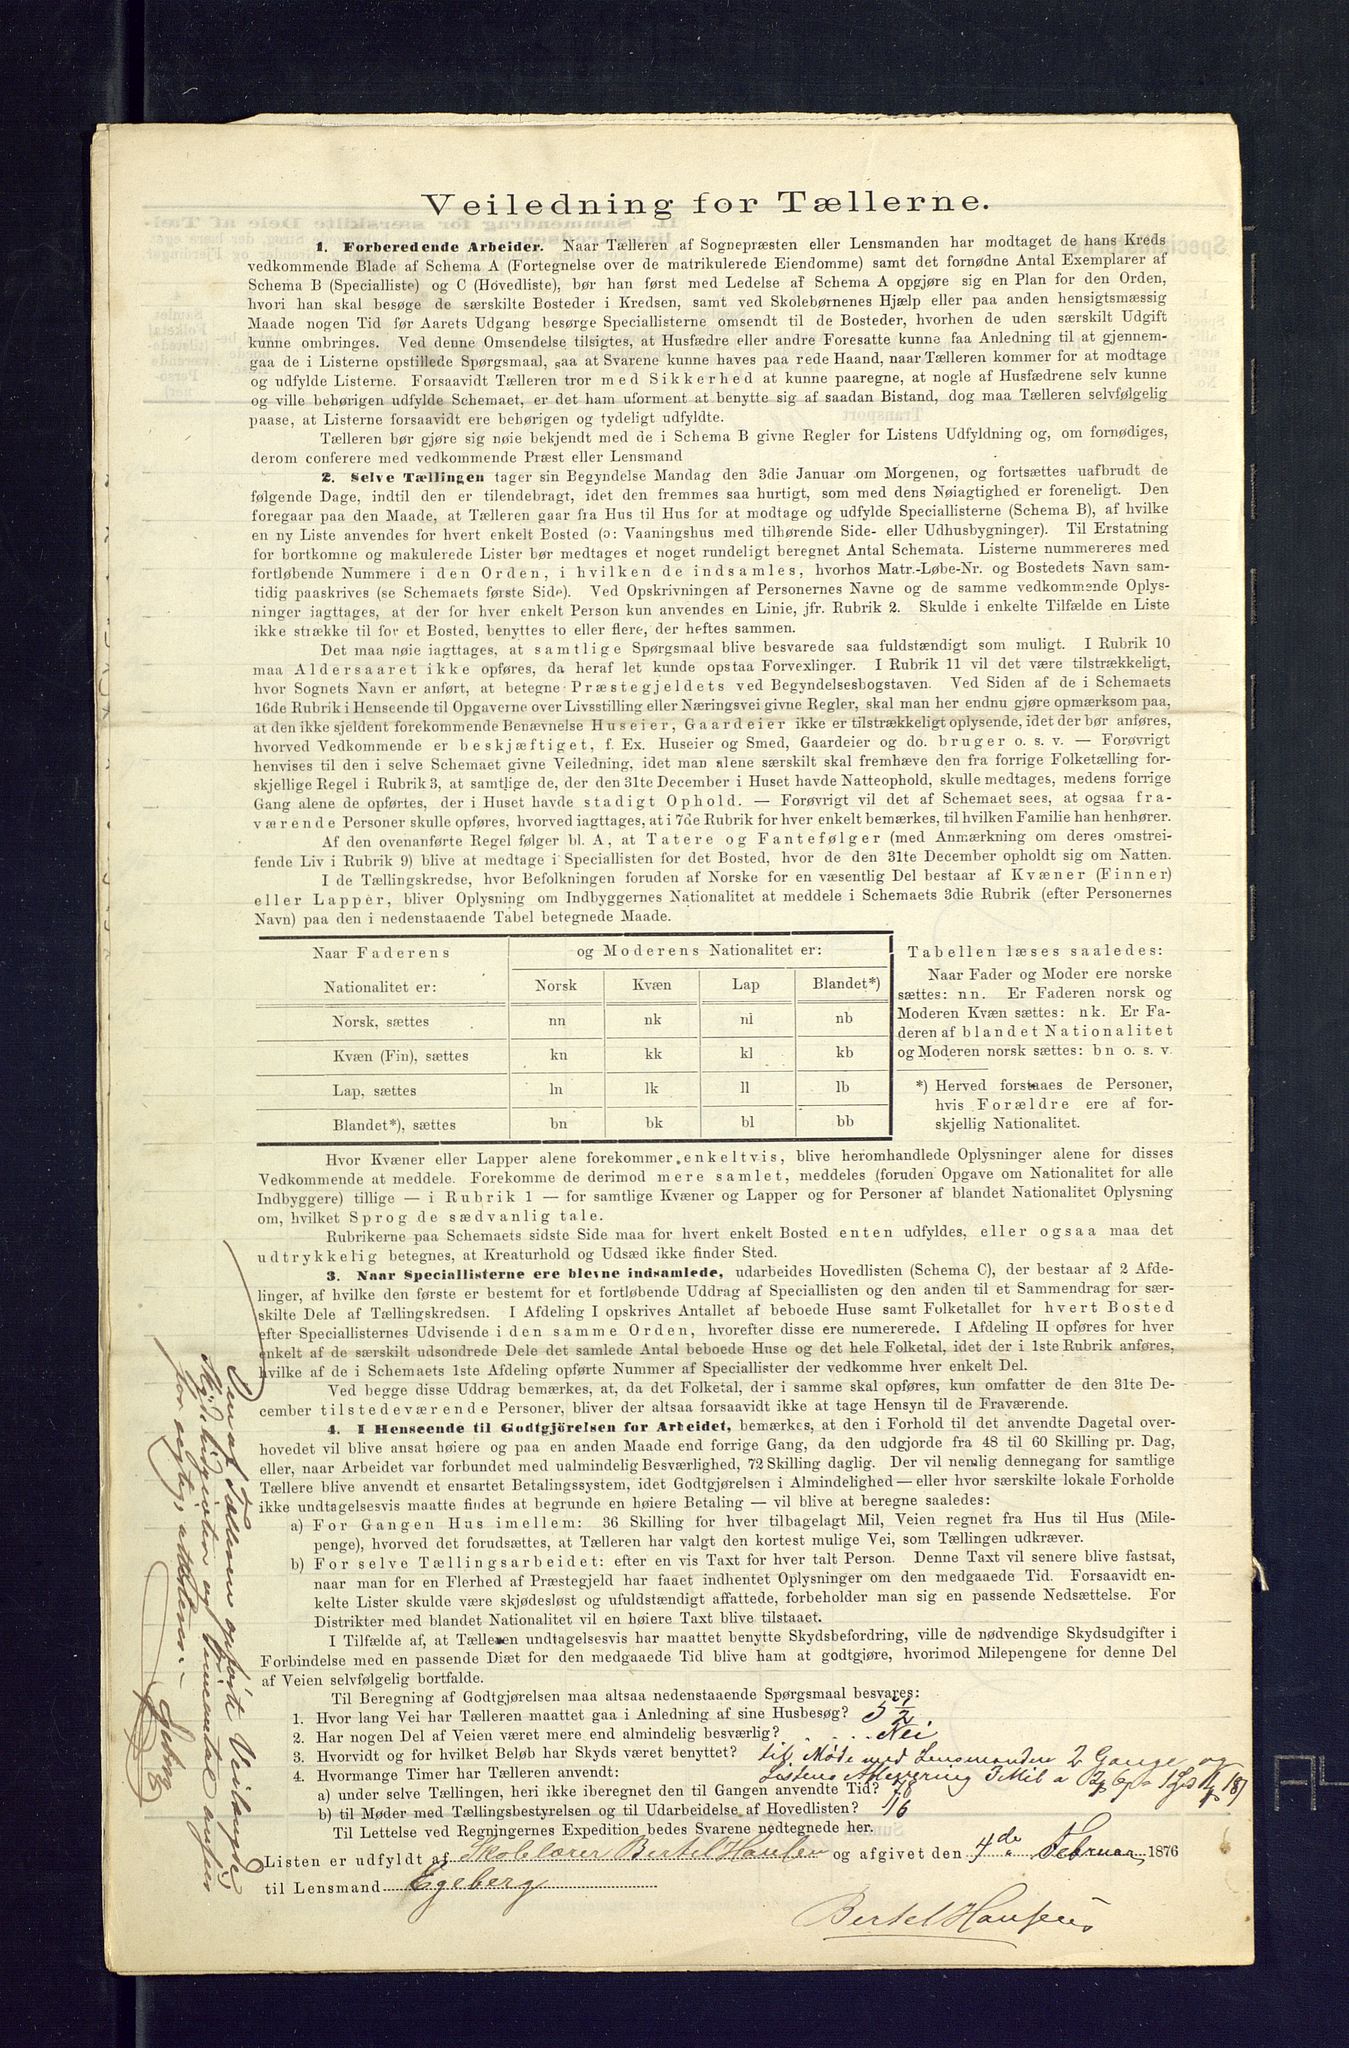 Veiledning for Tællerne.
1. Forberedende Arbeider. Naar Tælleren af Sognepræsten eller Lensmanden har modtaget de hans Kreds
vedkommende Blade af Schema A (Fortegnelse over de matrikulerede Eiendomme) samt det fornødne Antal Exemplarer af
Schema B (Specialliste) og C (Hovedliste), bør han først med Ledelse af Schema A opgjøre sig en Plan for den Orden,
hvori han skal besøge de særskilte Bosteder i Kredsen, samt ved Skolebørnenes Hjælp eller paa anden hensigtsmæssig
Maade nogen Tid før Aarets Udgang besørge Speciallisterne omsendt til de Bosteder, hvorhen de uden særskilt Udgift
kunne ombringes. Ved denne Omsendelse tilsigtes, at Husfædre eller andre Foresatte kunne faa Anledning til at gjennem-
gaa de i Listerne opstillede Spørgsmaal, saa at Svarene kunne haves paa rede Haand, naar Tælleren kommer for at modtage
og udfylde Listerne. Forsaavidt Tælleren tror med Sikkerhed at kunne paaregne, at nogle af Husfædrene selv kunne
og ville behørigen udfylde Schemaet, er det ham uforment at benytte sig af saadan Bistand, dog maa Tælleren selvfølgelig
paase, at Listerne forsaavidt ere behørigen og tydeligt udfyldte.
Tælleren bør gjøre sig nøie bekjendt med de i Schema B givne Regler for Listens Udfyldning og, om fornødiges,
derom conferere med vedkommende Præst eller Lensmand
2. Selve Tællingen tager sin Begyndelse Mandag den 3die Januar om Morgenen, og fortsættes uafbrudt de
følgende Dage, indtil den er tilendebragt, idet den fremmes saa hurtigt, som med dens Nøiagtighed er foreneligt. Den
foregaar paa den Maade, at Tælleren gaar fra Hus til Hus for at modtage og udfylde Speciallisterne (Schema B), af hvilke
en ny Liste anvendes for hvert enkelt Bosted (ɔ: Vaaningshus med tilhørende Side- eller Udhusbygninger). Til Erstatning
for bortkomne og makulerede Lister bør medtages et noget rundeligt beregnet Antal Schemata. Listerne nummereres med
fortløbende Nummere i den Orden, i hvilken de indsamles, hvorhos Matr.-Løbe-Nr. og Bostedets Navn sam-
tidig paaskrives (se Schemaets første Side). Ved Opskrivningen af Personernes Navne og de samme vedkommende Oplys-
ninger iagttages, at der for hver enkelt Person kun anvendes en Linie, jfr. Rubrik 2. Skulde i enkelte Tilfælde en Liste
ikke strække til for et Bosted, benyttes to eller flere, der heftes sammen.
Det maa nøie iagttages, at samtlige Spørgsmaal blive besvarede saa fuldstændigt som muligt. I Rubrik 10
maa Aldersaaret ikke opføres, da heraf let kunde opstaa Forvexlinger. I Rubrik 11 vil det være tilstrækkeligt,
hvor Sognets Navn er anført, at betegne Præstegjeldets ved Begyndelsesbogstaven. Ved Siden af de i Schemaets
16de Rubrik i Henseende til Opgaverne over Livsstilling eller Næringsvei givne Regler, skal man her endnu gjøre opmærksom paa,
at den ikke sjeldent forekommende Benævnelse Huseier, Gaardeier ikke er tilstrækkeligt oplysende, idet der bør anføres,
hvorved Vedkommende er beskjæftiget, f. Ex. Huseier og Smed, Gaardeier og do. bruger o. s. v. — Forøvrigt
henvises til den i selve Schemaet givne Veiledning, idet man alene særskilt skal fremhæve den fra forrige Folketælling for-
skjellige Regel i Rubrik 3, at samtlige de, der den 31te December i Huset havde Natteophold, skulle medtages, medens forrige
Gang alene de opførtes, der i Huset havde stadigt Ophold. — Forøvrigt vil det af Schemaet sees, at ogsaa fra-
værende Personer skulle opføres, hvorved iagttages, at i 7de Rubrik for hver enkelt bemærkes, til hvilken Familie han henhører.
Af den ovenanførte Regel følger bl. A, at Tatere og Fantefølger (med Anmærkning om deres omstrei-
fende Liv i Rubrik 9) blive at medtage i Speciallisten for det Bosted, hvor de den 31te December opholdt sig om Natten.
I de Tællingskredse, hvor Befolkningen foruden af Norske for en væsentlig Del bestaar af Kvæner (Finner)
eller Lapper, bliver Oplysning om Indbyggernes Nationalitet at meddele i Schemaets 3die Rubrik (efter Personernes
Navn) paa den i nedenstaaende Tabel betegnede Maade.
Naar Faderens og Moderens Nationalitet er:
Nationalitet er: Norsk Kvæn Lap Blandet*)
Norsk, sættes nn nk nl nb
Kvæn (Fin), sættes kn kk kl kb
Lap, sættes ln lk ll lb
Blandet*), sættes bn bk bl bb
Tabellen læses saaledes:
Naar Fader og Moder ere norske
sættes: nn. Er Faderen norsk og
Moderen Kvæn sættes: nk. Er Fa-
deren af blandet Nationalitet
og Moderen norsk sættes: bn o. s. v.
*) Herved forstaaes de Personer,
hvis Forældre ere af for-
skjellig Nationalitet.
Hvor Kvæner eller Lapper alene forekommer enkeltvis, blive heromhandlede Oplysninger alene for disses
Vedkommende at meddele. Forekomme de derimod mere samlet, meddeles (foruden Opgave om Nationalitet for alle
Indbyggere) tillige — i Rubrik 1 — for samtlige Kvæner og Lapper og for Personer af blandet Nationalitet Oplysning
om, hvilket Sprog de sædvanlig tale.
Rubrikerne paa Schemaets sidste Side maa for hvert enkelt Bosted enten udfyldes, eller ogsaa maa det
udtrykkelig betegnes, at Kreaturhold og Udsæd ikke finder Sted.
3. Naar Speciallisterne ere blevne indsamlede, udarbeides Hovedlisten (Schema C), der bestaar af 2 Afde-
linger, af hvilke den første er bestemt for et fortløbende Uddrag af Speciallisten og den anden til et Sammendrag for sær-
skilte Dele af Tællingskredsen. I Afdeling I opskrives Antallet af beboede Huse samt Folketallet for hvert Bosted
efter Speciallisternes Udvisende i den samme Orden, hvorefter disse ere numererede. I Afdeling II opføres for hver
enkelt af de særskilt udsondrede Dele det samlede Antal beboede Huse og det hele Folketal, idet der i 1ste Rubrik anføres,
hvilke af de i Schemaets 1ste Afdeling opførte Nummer af Speciallister der vedkomme hver enkelt Del.
Ved begge disse Uddrag bemærkes, at, da det Folketal, der i samme skal opføres, kun omfatter de den 31te De-
cember tilstedeværende Personer, bliver der altsaa forsaavidt ikke at tage Hensyn til de Fraværende.
4. I Henseende til Godtgjörelsen for Arbeidet, bemærkes, at den i Forhold til det anvendte Dagetal over-
hovedet vil blive ansat høiere og paa en anden Maade end forrige Gang, da den udgjorde fra 48 til 60 Skilling pr. Dag,
eller, naar Arbeidet var forbundet med ualmindelig Besværlighed, 72 Skilling daglig. Der vil nemlig dennegang for samtlige
Tællere blive anvendt et ensartet Betalingssystem, idet Godtgjørelsen i Almindelighed — eller hvor særskilte lokale Forholde
ikke undtagelsesvis maatte findes at begrunde en høiere Betaling — vil blive at beregne saaledes:
a) For Gangen Hus imellem: 36 Skilling for hver tilbagelagt Mil, Veien regnet fra Hus til Hus (Mile-
penge), hvorved det forudsættes, at Tælleren har valgt den kortest mulige Vei, som Tællingen udkræver.
b) For selve Tællingsarbeidet: efter en vis Taxt for hver talt Person. Denne Taxt vil senere blive fastsat,
naar man for en Flerhed af Præstegjeld har faaet indhentet Oplysninger om den medgaaede Tid. Forsaavidt en-
kelte Lister skulde være skjødesløst og ufuldstændigt affattede, forbeholder man sig en passende Nedsættelse. For
Distrikter med blandet Nationalitet vil en høiere Taxt blive tilstaaet.
I Tilfælde af, at Tælleren undtagelsesvis har maattet benytte Skydsbefordring, ville de nødvendige Skydsudgifter i
Forbindelse med en passende Diæt for den medgaaede Tid blive ham at godtgjøre, hvorimod Milepengene for denne Del
af Veien selvfølgelig bortfalde.
Til Beregning af Godtgjørelsen maa altsaa nedenstaaende Spørgsmaal besvares:
1. Hvor lang Vei har Tælleren maattet gaa i Anledning af sine Husbesøg? 5 1/2
2. Har nogen Del af Veien været mere end almindelig besværlig? Nei
3. Hvorvidt og for hvilket Beløb har Skyds været benyttet? til Møde med Lensmanden 2 Gange og
Listens Aflevering 3 Mil a
4. Hvormange Timer har Tælleren anvendt:
a) under selve Tællingen, heri ikke iberegnet den til Gangen anvendte Tid?
b) til Møder med Tællingsbestyrelsen og til Udarbeidelse af Hovedlisten? 16
Til Lettelse ved Regningernes Expedition bedes Svarene nedtegnede her.
Listen er udfyldt af Skolelærer Bertel Hansen og afgivet den 4de Februar 1876
til Lensmand Egeberg
Bertel Hansen
Den af Tælleren opførte Veilængde,
Skydsudgifter og Timeantal ansees
for rigtig, attesteres.